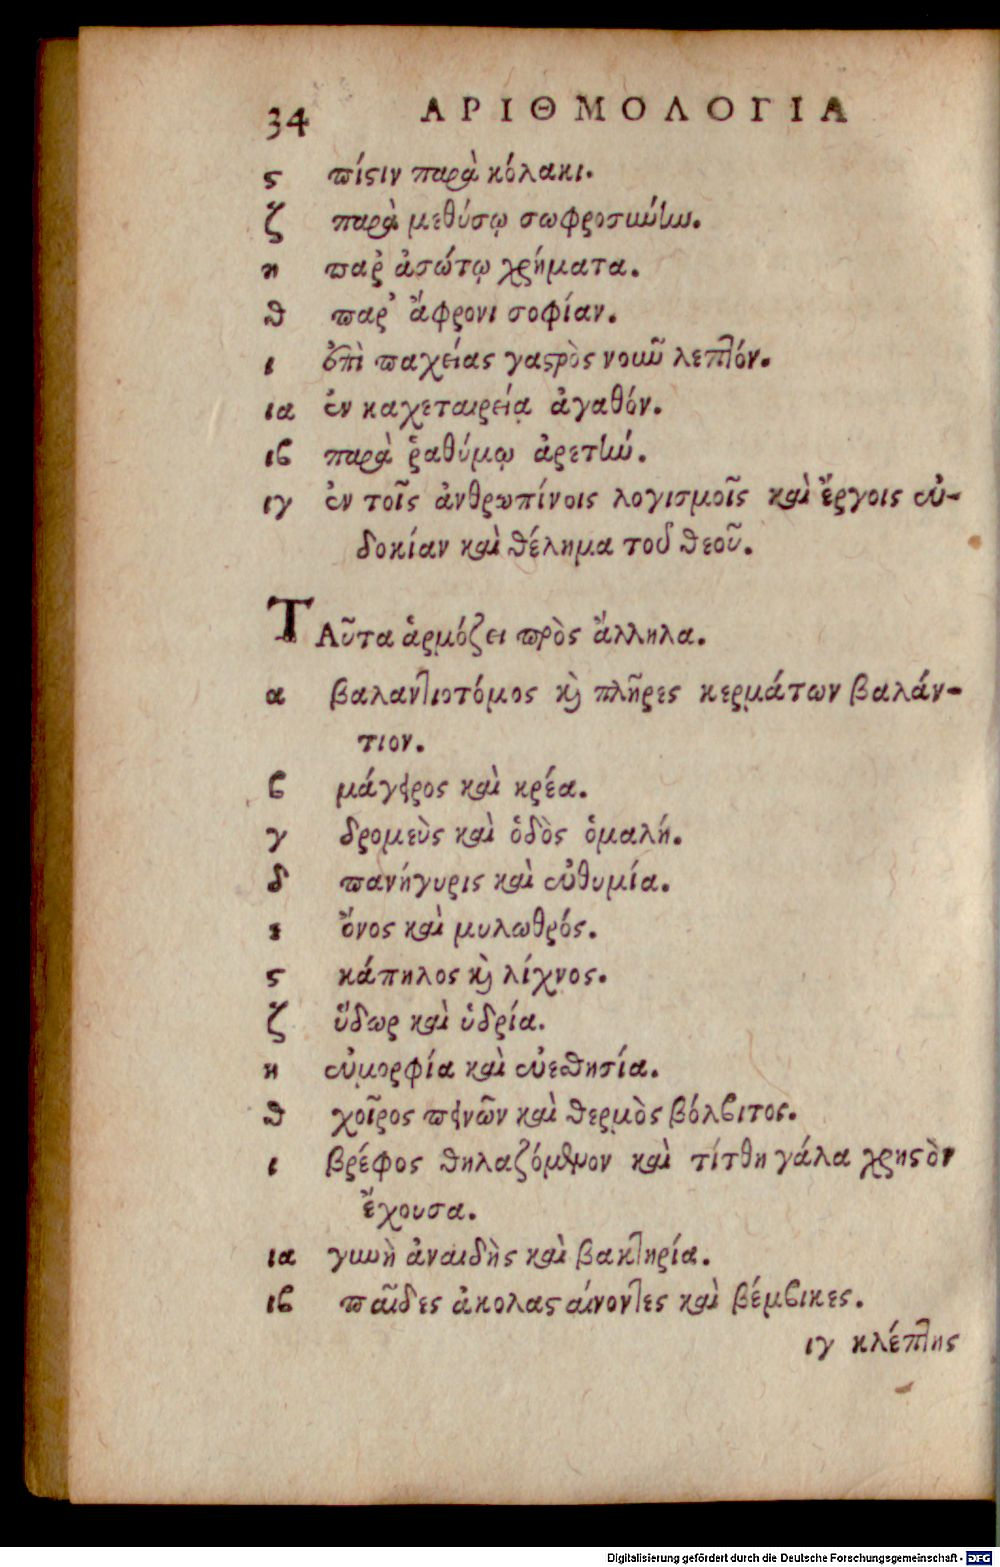 34 ΑΡΙΘΜΟΛΟΓΙΑ
ϛ πίϛιν παρὰ κόλακι.
ζ παρὰ μεθύσῳ σωφροσύνην.
η παρ ἀσώτῳ χρήματα.
θ παρ' ἄφρονι σοφίαν.
ι ἐπὶ παχείας γαϛρὸς νοῦν λεπτόν.
ια ἐν καχεταιρείᾳ ἀγαθόν.
ιϐ παρὰ ῥαθύμῳ ἀρετήν.
ιγ ἐν τοῖς ἀνθρωπίνοις λογισμοῖς καὶ ἔργοις εὐ-
δοκίαν καὶ θέλημα τοῦ θεοῦ.
ΤΑῦτα ἁρμόζει πρὸς ἄλληλα.
α βαλαντιοτόμος καὶ πλῆρες κερμάτων βαλάν-
τιον.
ϐ μάγειρος καὶ κρέα.
γ δρομεὺς καὶ ὁδὸς ὁμαλή.
δ πανήγυρις καὶ εὐθυμία.
ε ὄνος καὶ μυλωθρός.
ϛ κάπηλος καὶ λίχνος.
ζ ὕδωρ καὶ ὑδρία.
η εὐμορφία καὶ εὐεσθησία.
θ χοῖρος πεινῶν καὶ θερμὸς βόλϐιτος.
ι βρέφος θηλαζόμενον καὶ τίτθη γάλα χρηϛὸν
ἔχουσα.
ια γυνὴ ἀναιδὴς καὶ βακτηρία.
ιϐ παῖδες ἀκολαϛαίνοντες καὶ βέμϐικες.
ιγ κλέπτης
Digitalisierung gefördert durch die Deutsche Forschungsgemeinschaft - DFG